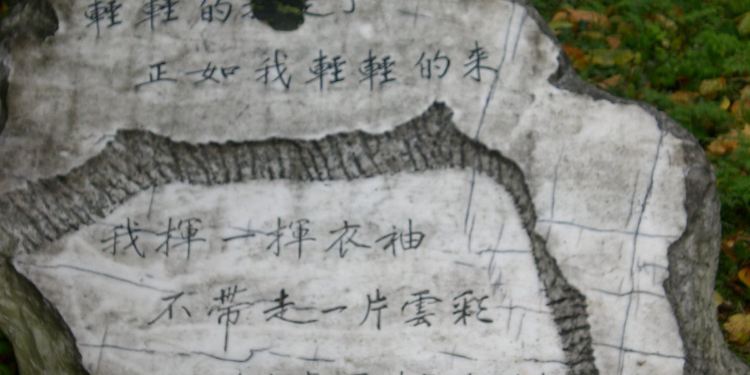 輕輕的我走了
正如我輕輕的来
我揮一揮衣袖
不帶走一片雲彩